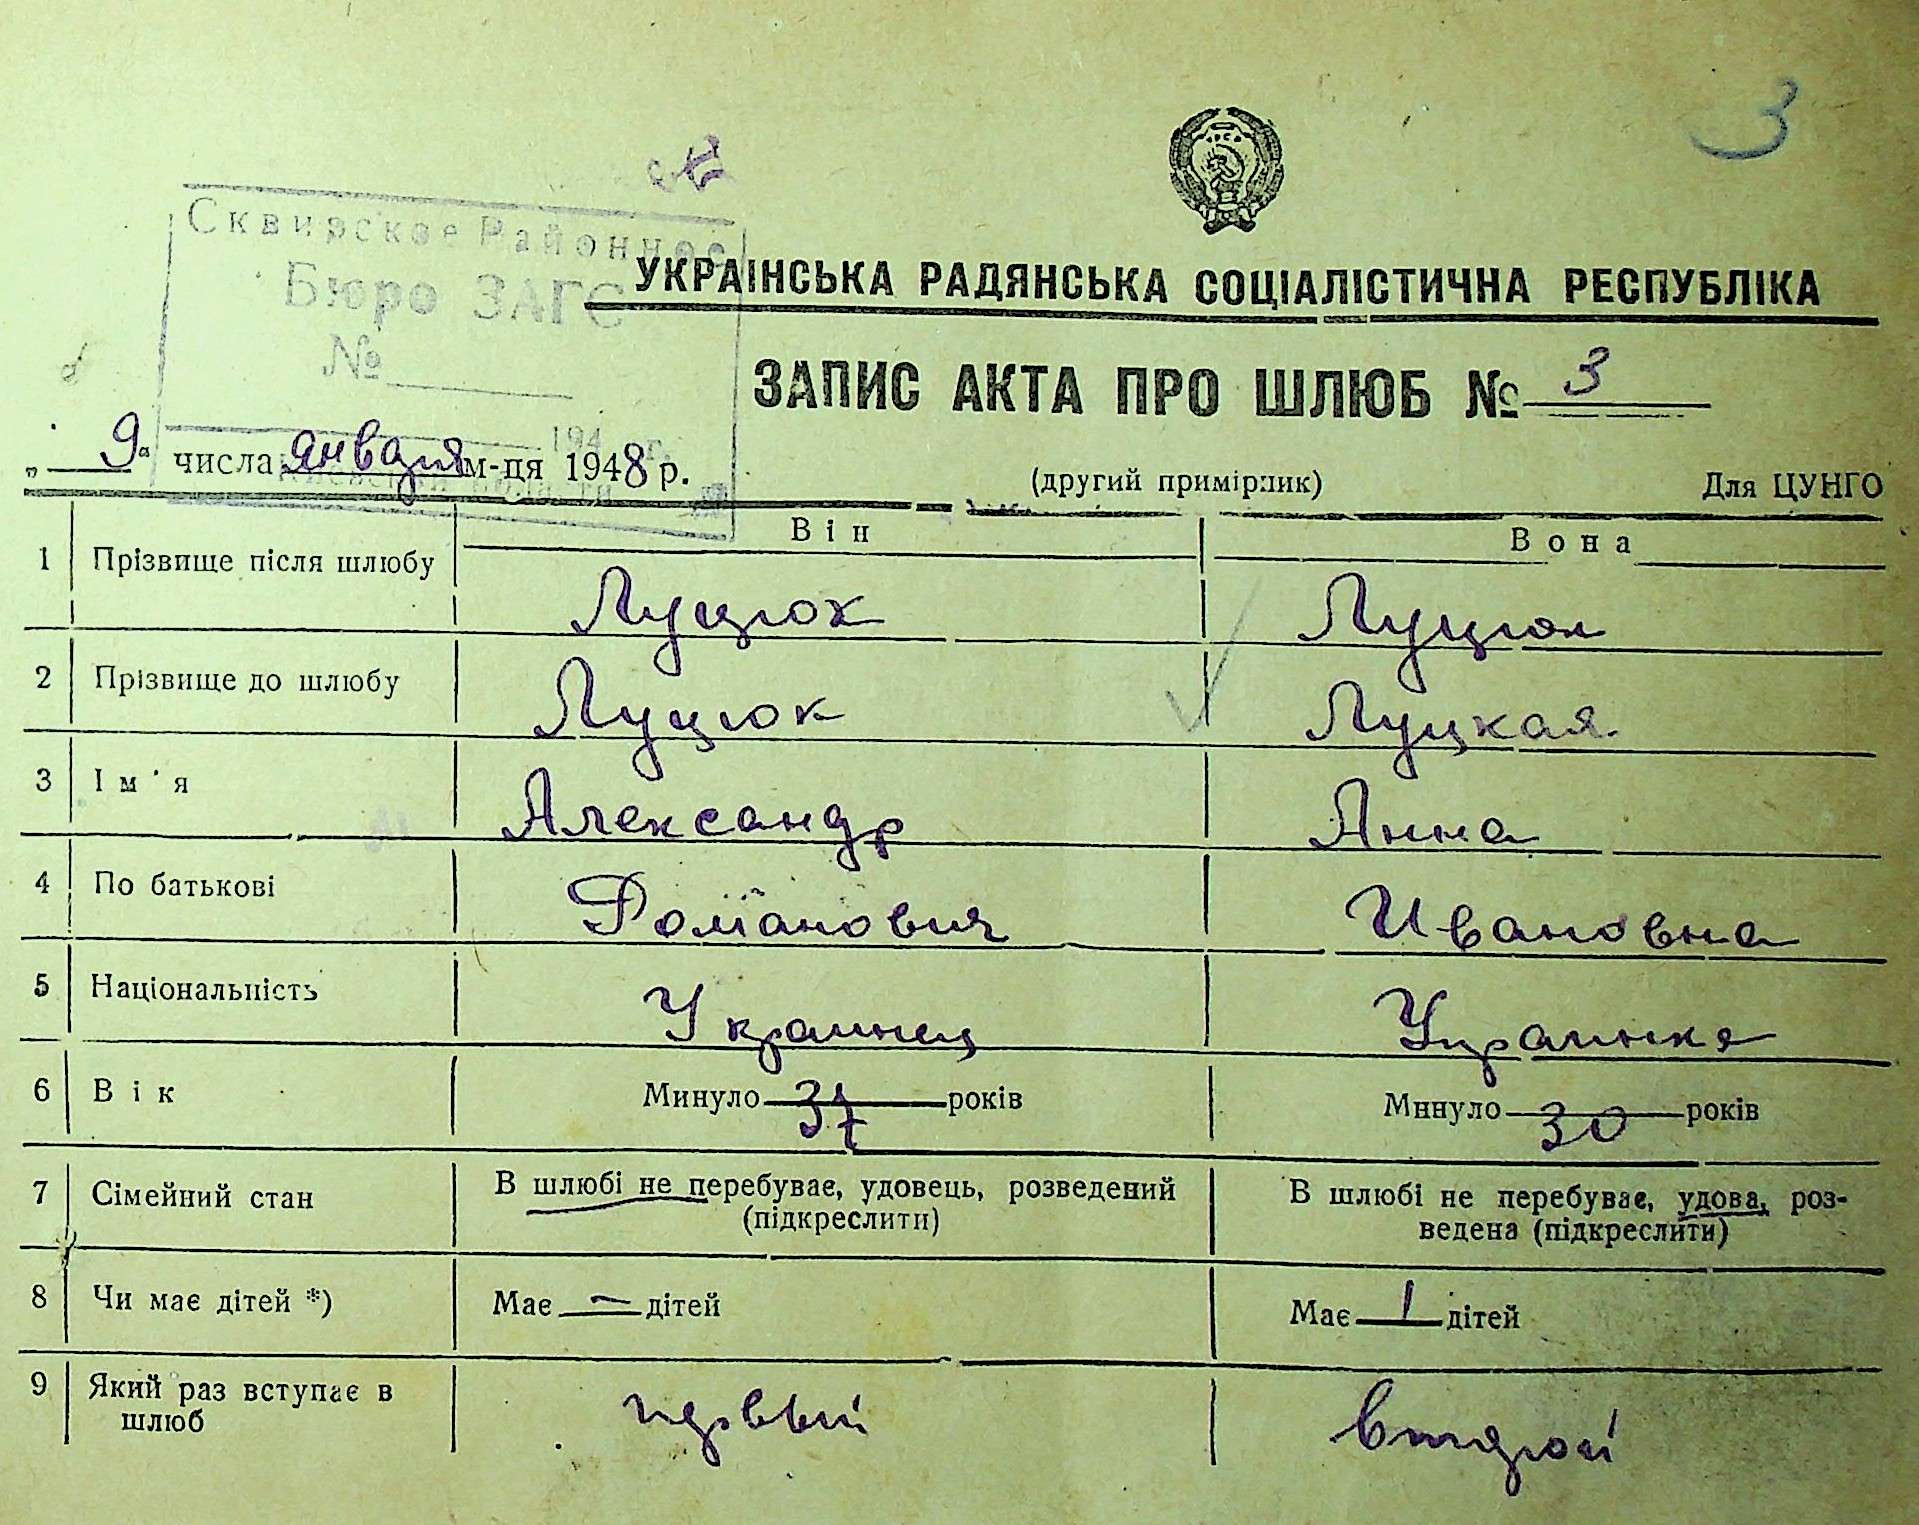 3
Сквирское Районное
Бюро ЗАГС
№
194 г.
Киевской области
УКРАІНСЬКА РАДЯНСЬКА СОЦІАЛІСТИЧНА РЕСПУБЛІКА
ЗАПИС АКТА ПРО ШЛЮБ № 3
„ 9 “ числа января м-ця 1948 р.
(другий примірник) Для ЦУНГО
Він Вона
1 Прізвище після шлюбу Луцюк Луцюк
2 Прізвище до шлюбу Луцюк Луцкая
3 Ім'я Александр Анна
4 По батькові Романович Ивановна
5 Національність Украинец Украинка
6 Вік Минуло 37 років Минуло 30 років
7 Сімейний стан В шлюбі не перебуває, удовець, розведений (підкреслити) В шлюбі не перебуває, удова, роз-
ведена (підкреслити)
8 Чи має дітей *) Має — дітей Має 1 дітей
9 Який раз вступає в шлюб первый второй